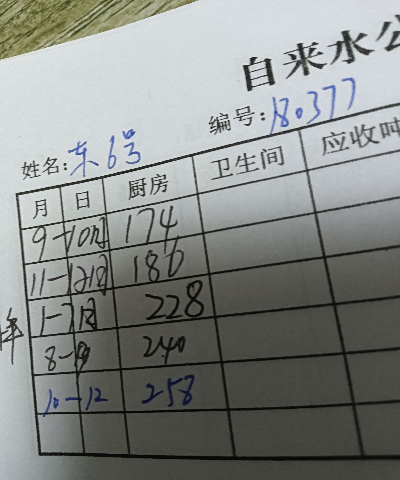 自来水公
编号:180377
姓名:东6号
月 日 厨房 卫生间 应收吨
9-10月 174
11-12月 186
1-7月 228
8-9 240
10-12 258